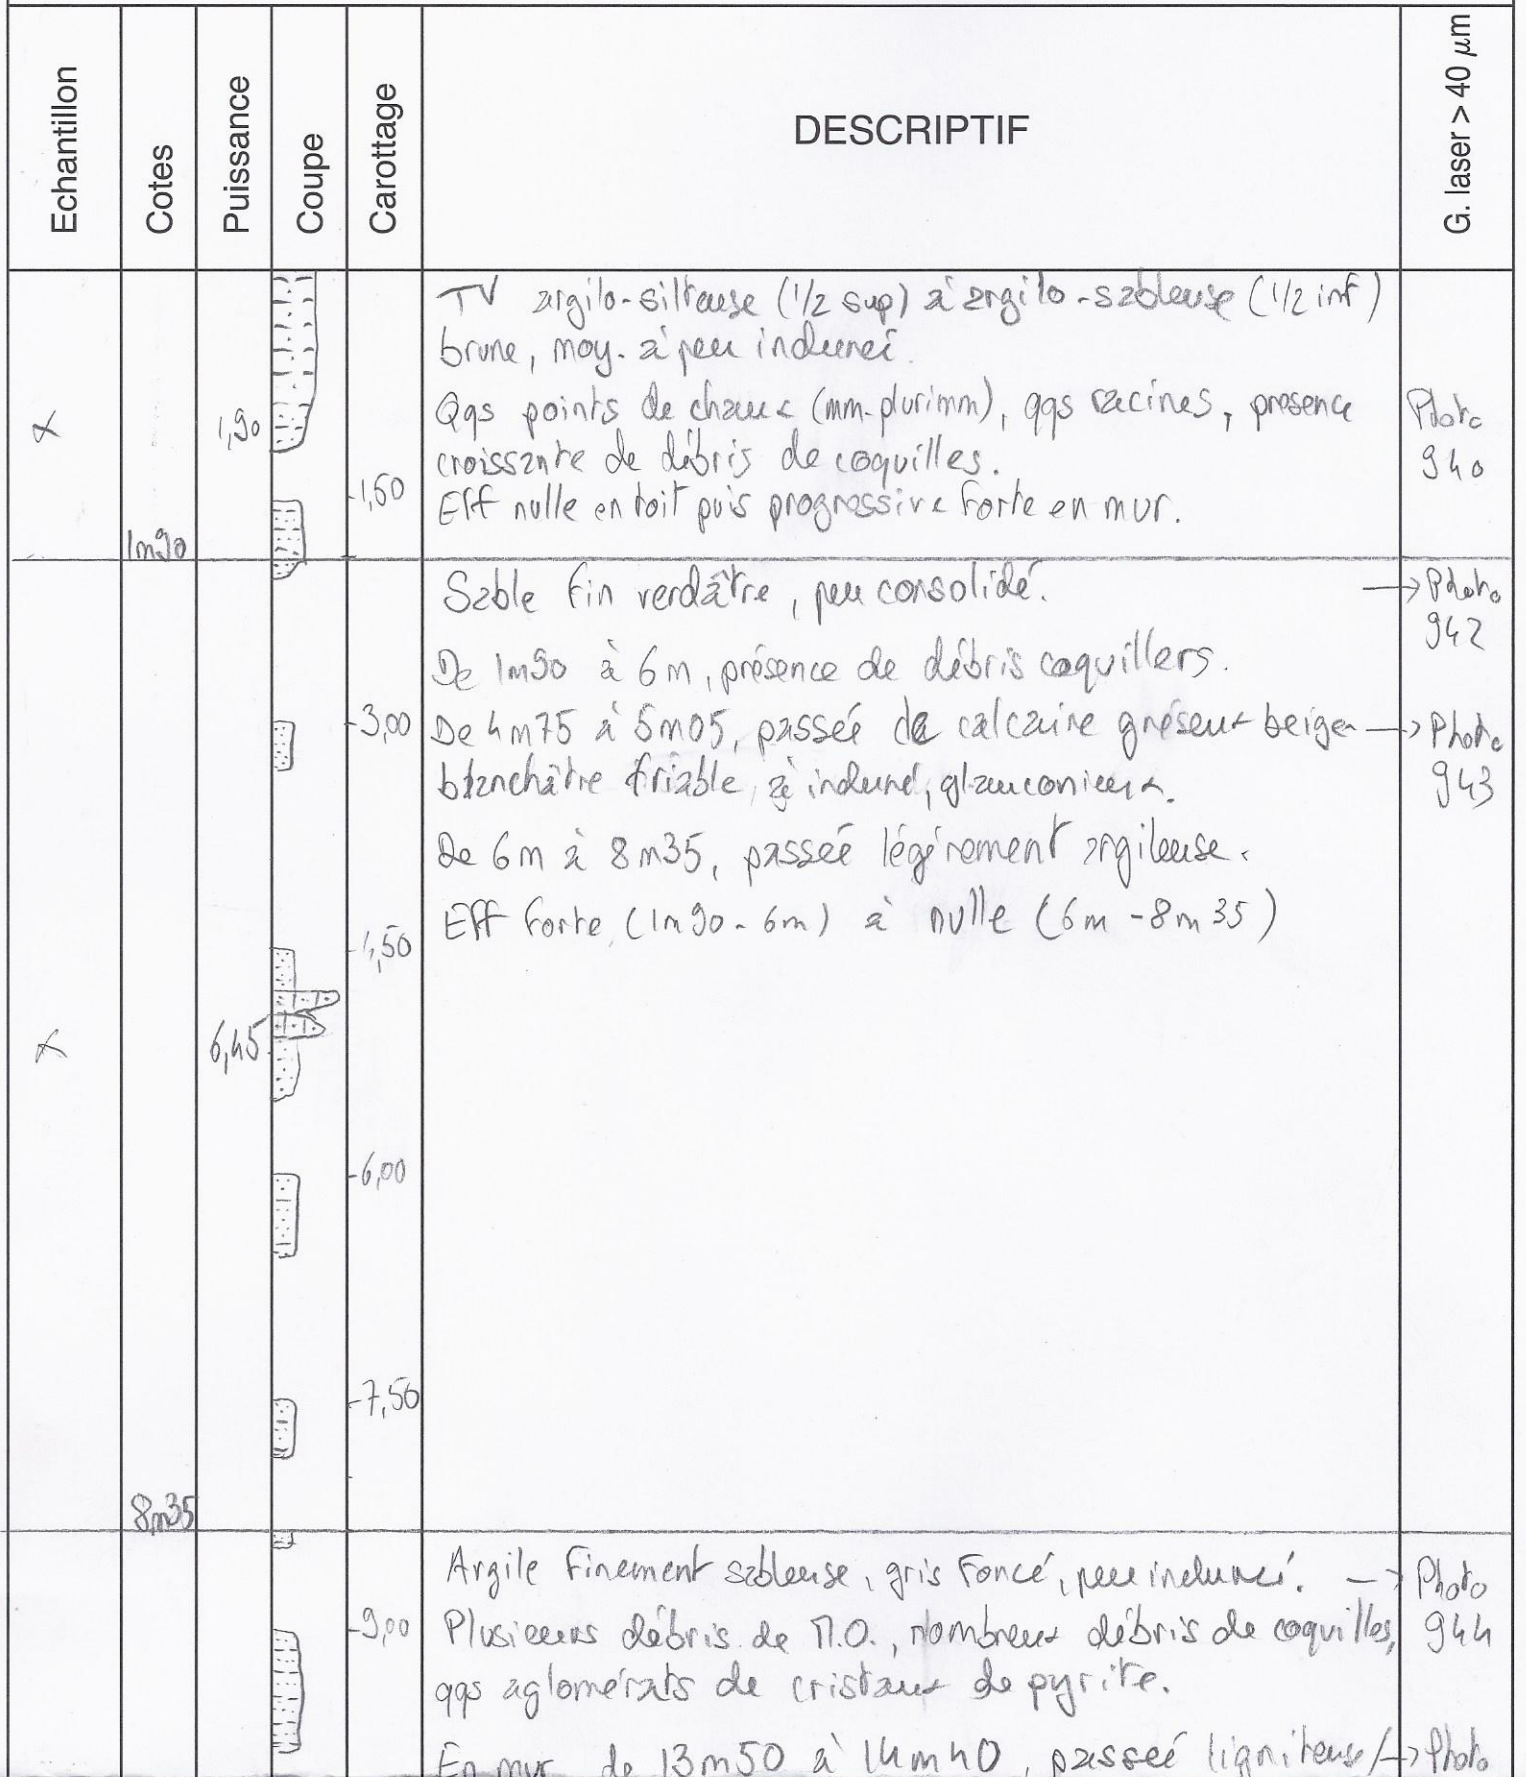 Echantillon
Cotes
Puissance
Coupe
Carottage
DESCRIPTIF
G. laser > 40 µm
TV argilo-silteuse (1/2 sup) à argilo-sableuse (1/2 inf)
brune, moy. à peu induré.
Qqs points de chaux (mm-plurimm), qqs racines, presence
croissante de débris de coquilles.
Eff nulle en toit puis progressive forte en mur.
x
1,90
Photo
940
-1,50
1m90
Sable fin verdâtre, peu consolidé.
→ Photo
942
De 1m90 à 6m, présence de débris coquillers.
-3,00
De 4m75 à 5m05, passée de calcaire gréseux beige
→ Photo
943
blanchâtre friable, à induré, glauconieux.
De 6m à 8m35, passée légèrement argileuse.
Eff forte (1m90 - 6m) à nulle (6m - 8m35)
4,50
x
6,45
-6,00
-7,50
8m35
Argile finement sableuse, gris foncé, peu induré.
→ Photo
944
-9,00
Plusieurs débris de M.O., nombreux débris de coquilles,
qqs aglomérats de cristaux de pyrite.
En mur de 13m50 à 14m40, passée ligniteuse/
→ Photo